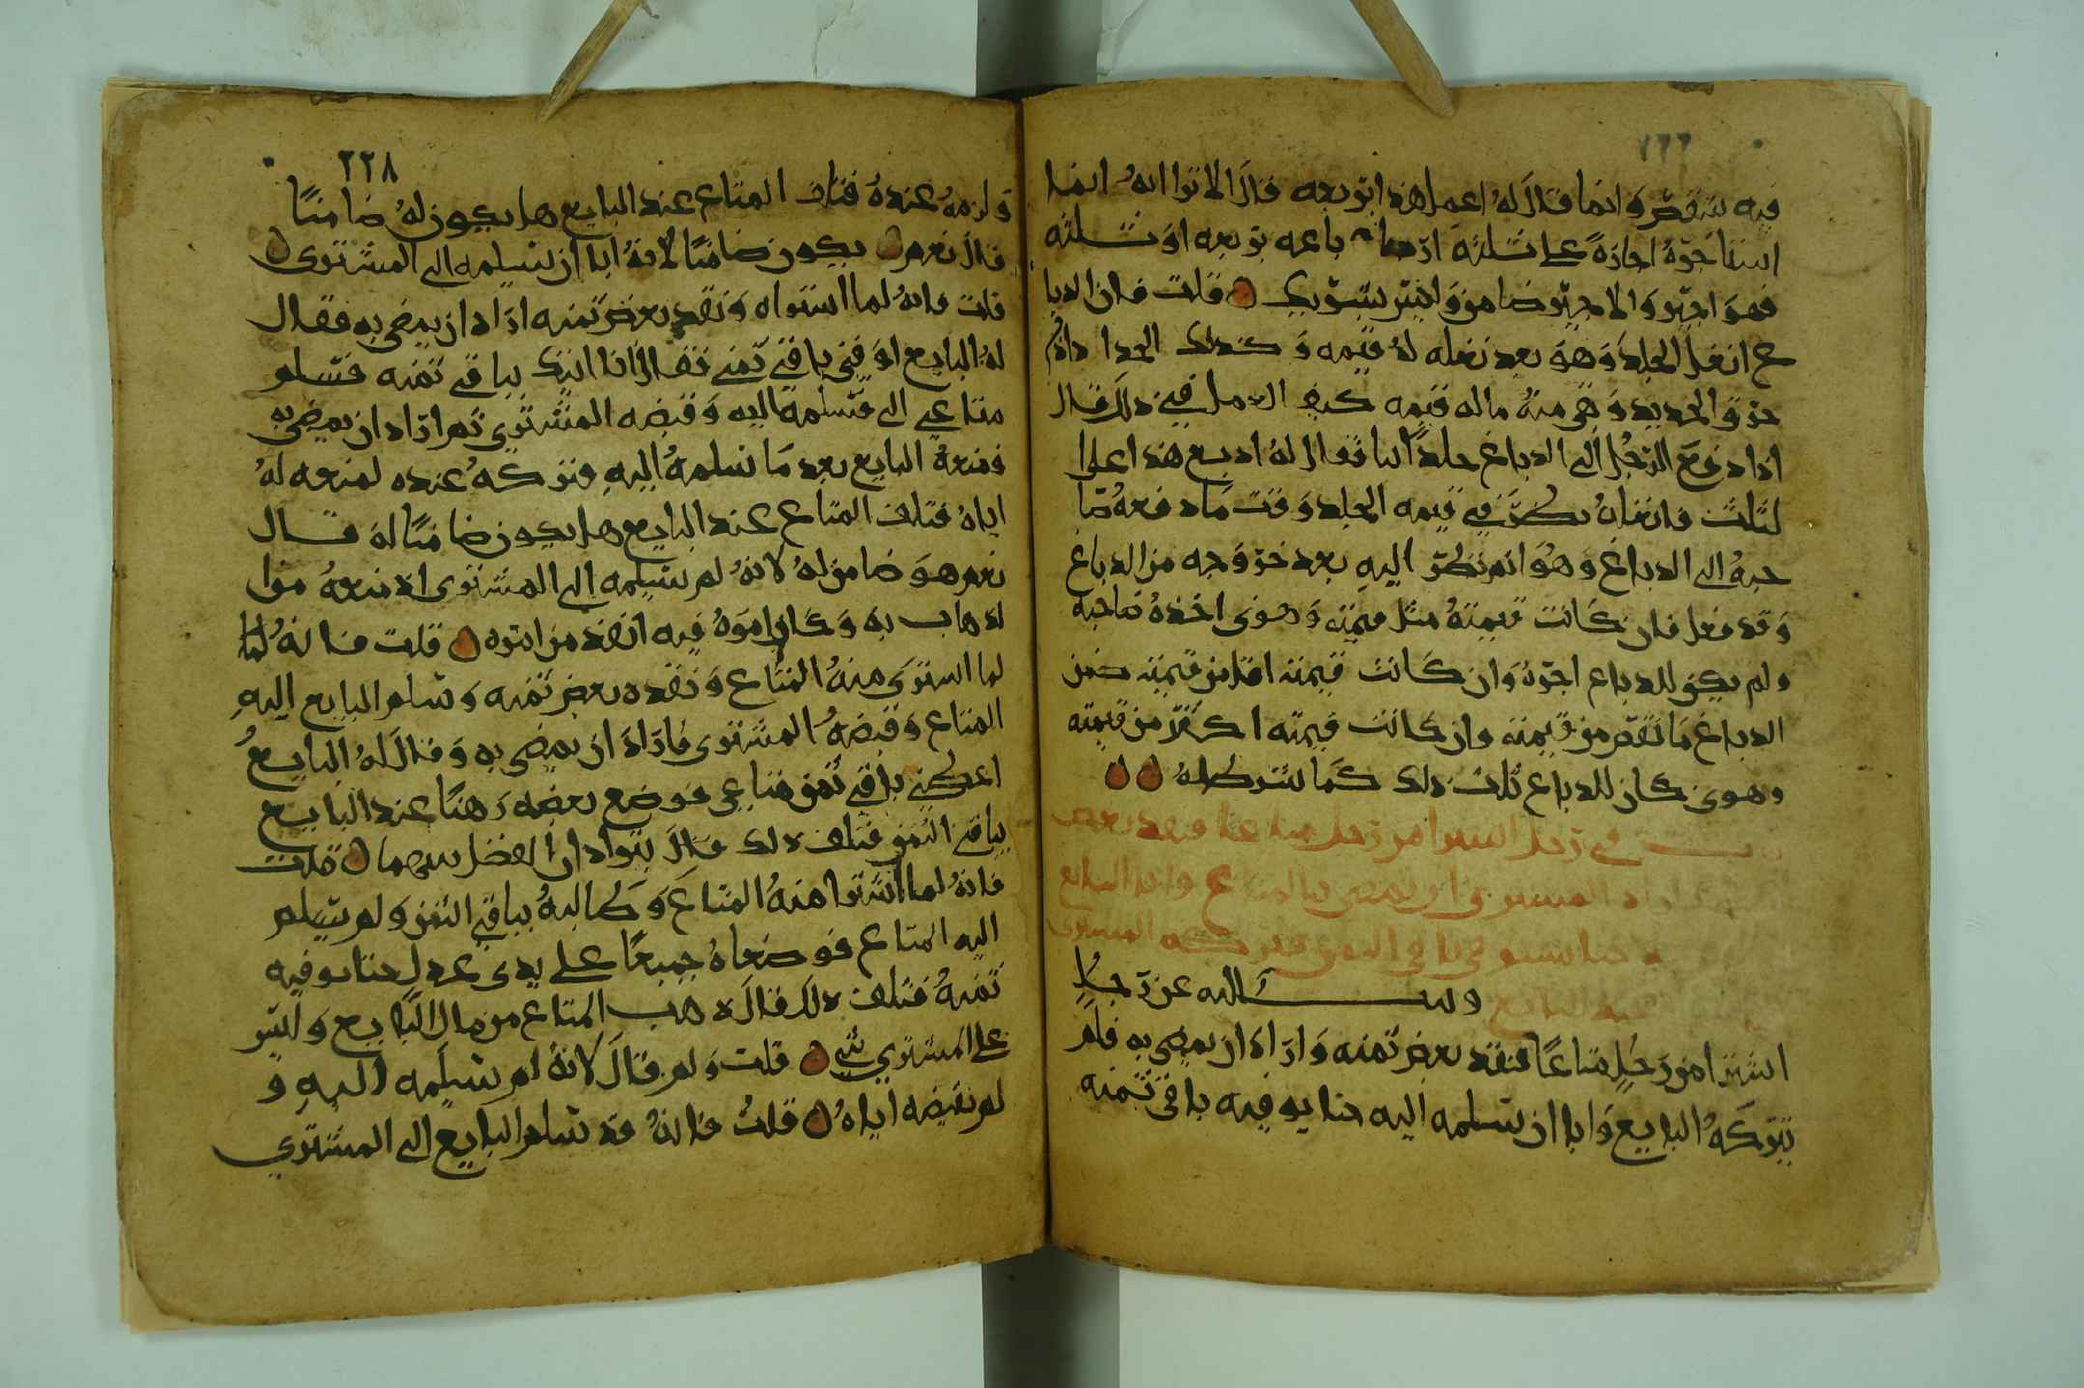 فيه ينقص وانما قال له اعمل هذا بربعه قال الا ترا انه انما
استاجره اجازة على ثلثه اذ باعه بربعه او ثلثه
فهو اجير والاجير ضامن وليس بشريك قلت فان الدبا
غ انغل الجلد وهو بعد نغله له قيمه وكذلك الحداد اذا
حرق الحديد وبقي منه ماله قيمه كيف العمل في ذلك قال
اذا دفع الرجل الى الدباغ جلدا لبا فقال له ادبغ هذا على
لثلث فانغله نظر في قيمه الجلد وقت ما دفعه صا
حبه الى الدباغ وهو ثم نظر اليه بعد خروجه من الدباغ
وقد فعل فان كانت قيمته مثل قيمته وهو ني اخذه صاحبه
ولم يكن للدباغ اجرة وان كانت قيمته اقل من قيمته ضمن
الدباغ ما نقص من قيمته وان كانت قيمته اكثر من قيمته
وهو ني كان للدباغ ثلث ذلك كما شرط له
في رجل اشترا من رجل متاعا فنقد بعض
اراد المشتري ان يمضي بالمتاع وابا البايع
حتا يستوفي باقي الثمن فتركه المشتري
عند البايع وسالته عن رجل
اشترا من رجل متاعا فنقد بعض ثمنه واراد ان يمضي به فلم
يتركه البايع وابا ان يسلمه اليه حتا يوفيه باقي ثمنه
٢٢٨
ولزمه عنده فتلف المتاع عند البايع هل يكون له ضامنا
قال نعم يكون ضامنا لانه ابا ان يسلمه الى المشتري
قلت فانه لما اشتراه ونقد بعض ثمنه اراد ان يمضي به فقال
له البايع اوفني باقي ثمني فقال انا اتيك بباقي ثمنه فسلم
متاعي الي فسلمه اليه وقبضه المشتري ثم اراد ان يمضي به
فمنعه البايع بعد ما سلمه اليه فتركه عنده لمنعه له
اياه فتلف المتاع عند البايع هل يكون ضامنا له قال
نعم هو ضامن له لانه لم يسلمه الى المشتري اذ منعه من ا
لذهاب به وكان امره فيه انفذ من امره قلت فانه لما
لما اشترى منه المتاع ونقده بعض ثمنه وسلم البايع اليه
المتاع وقبضه المشتري فاراد ان يمضي به وقال له البايع
اعطيني باقي ثمن متاعي فوضع بعضه رهنا عند البايع
بباقي الثمن فتلف ذلك قال يترادان الفضل بينهما قلت
فانه لما اشترا منه المتاع وطالبه بباقي الثمن ولم يسلم
اليه المتاع فوضعاه جميعا على يدي عدل حتا يوفيه
ثمنه فتلف ذلك قال ذهب المتاع من مال البايع وليس
على المشتري شي قلت ولم قال لانه لم يسلمه اليه و
لم يقبضه اياه قلت فانه قد سلم البايع الى المشتري